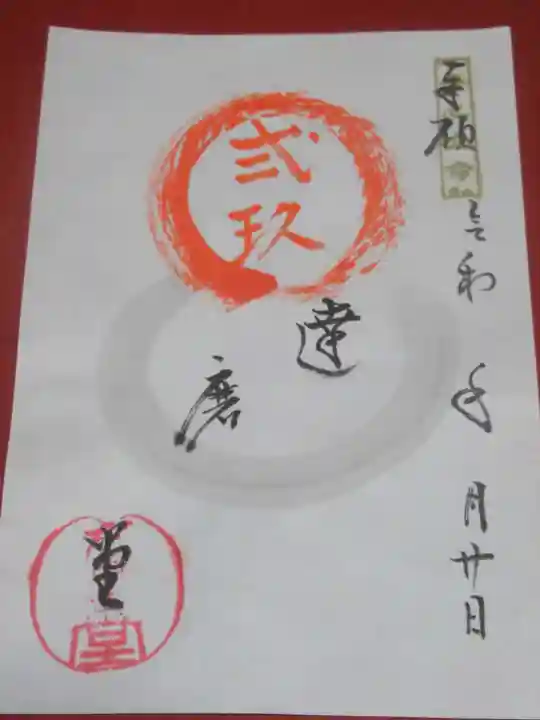 奉拝
令和 年 月廿日
弐
玖
達
磨
堂
堂